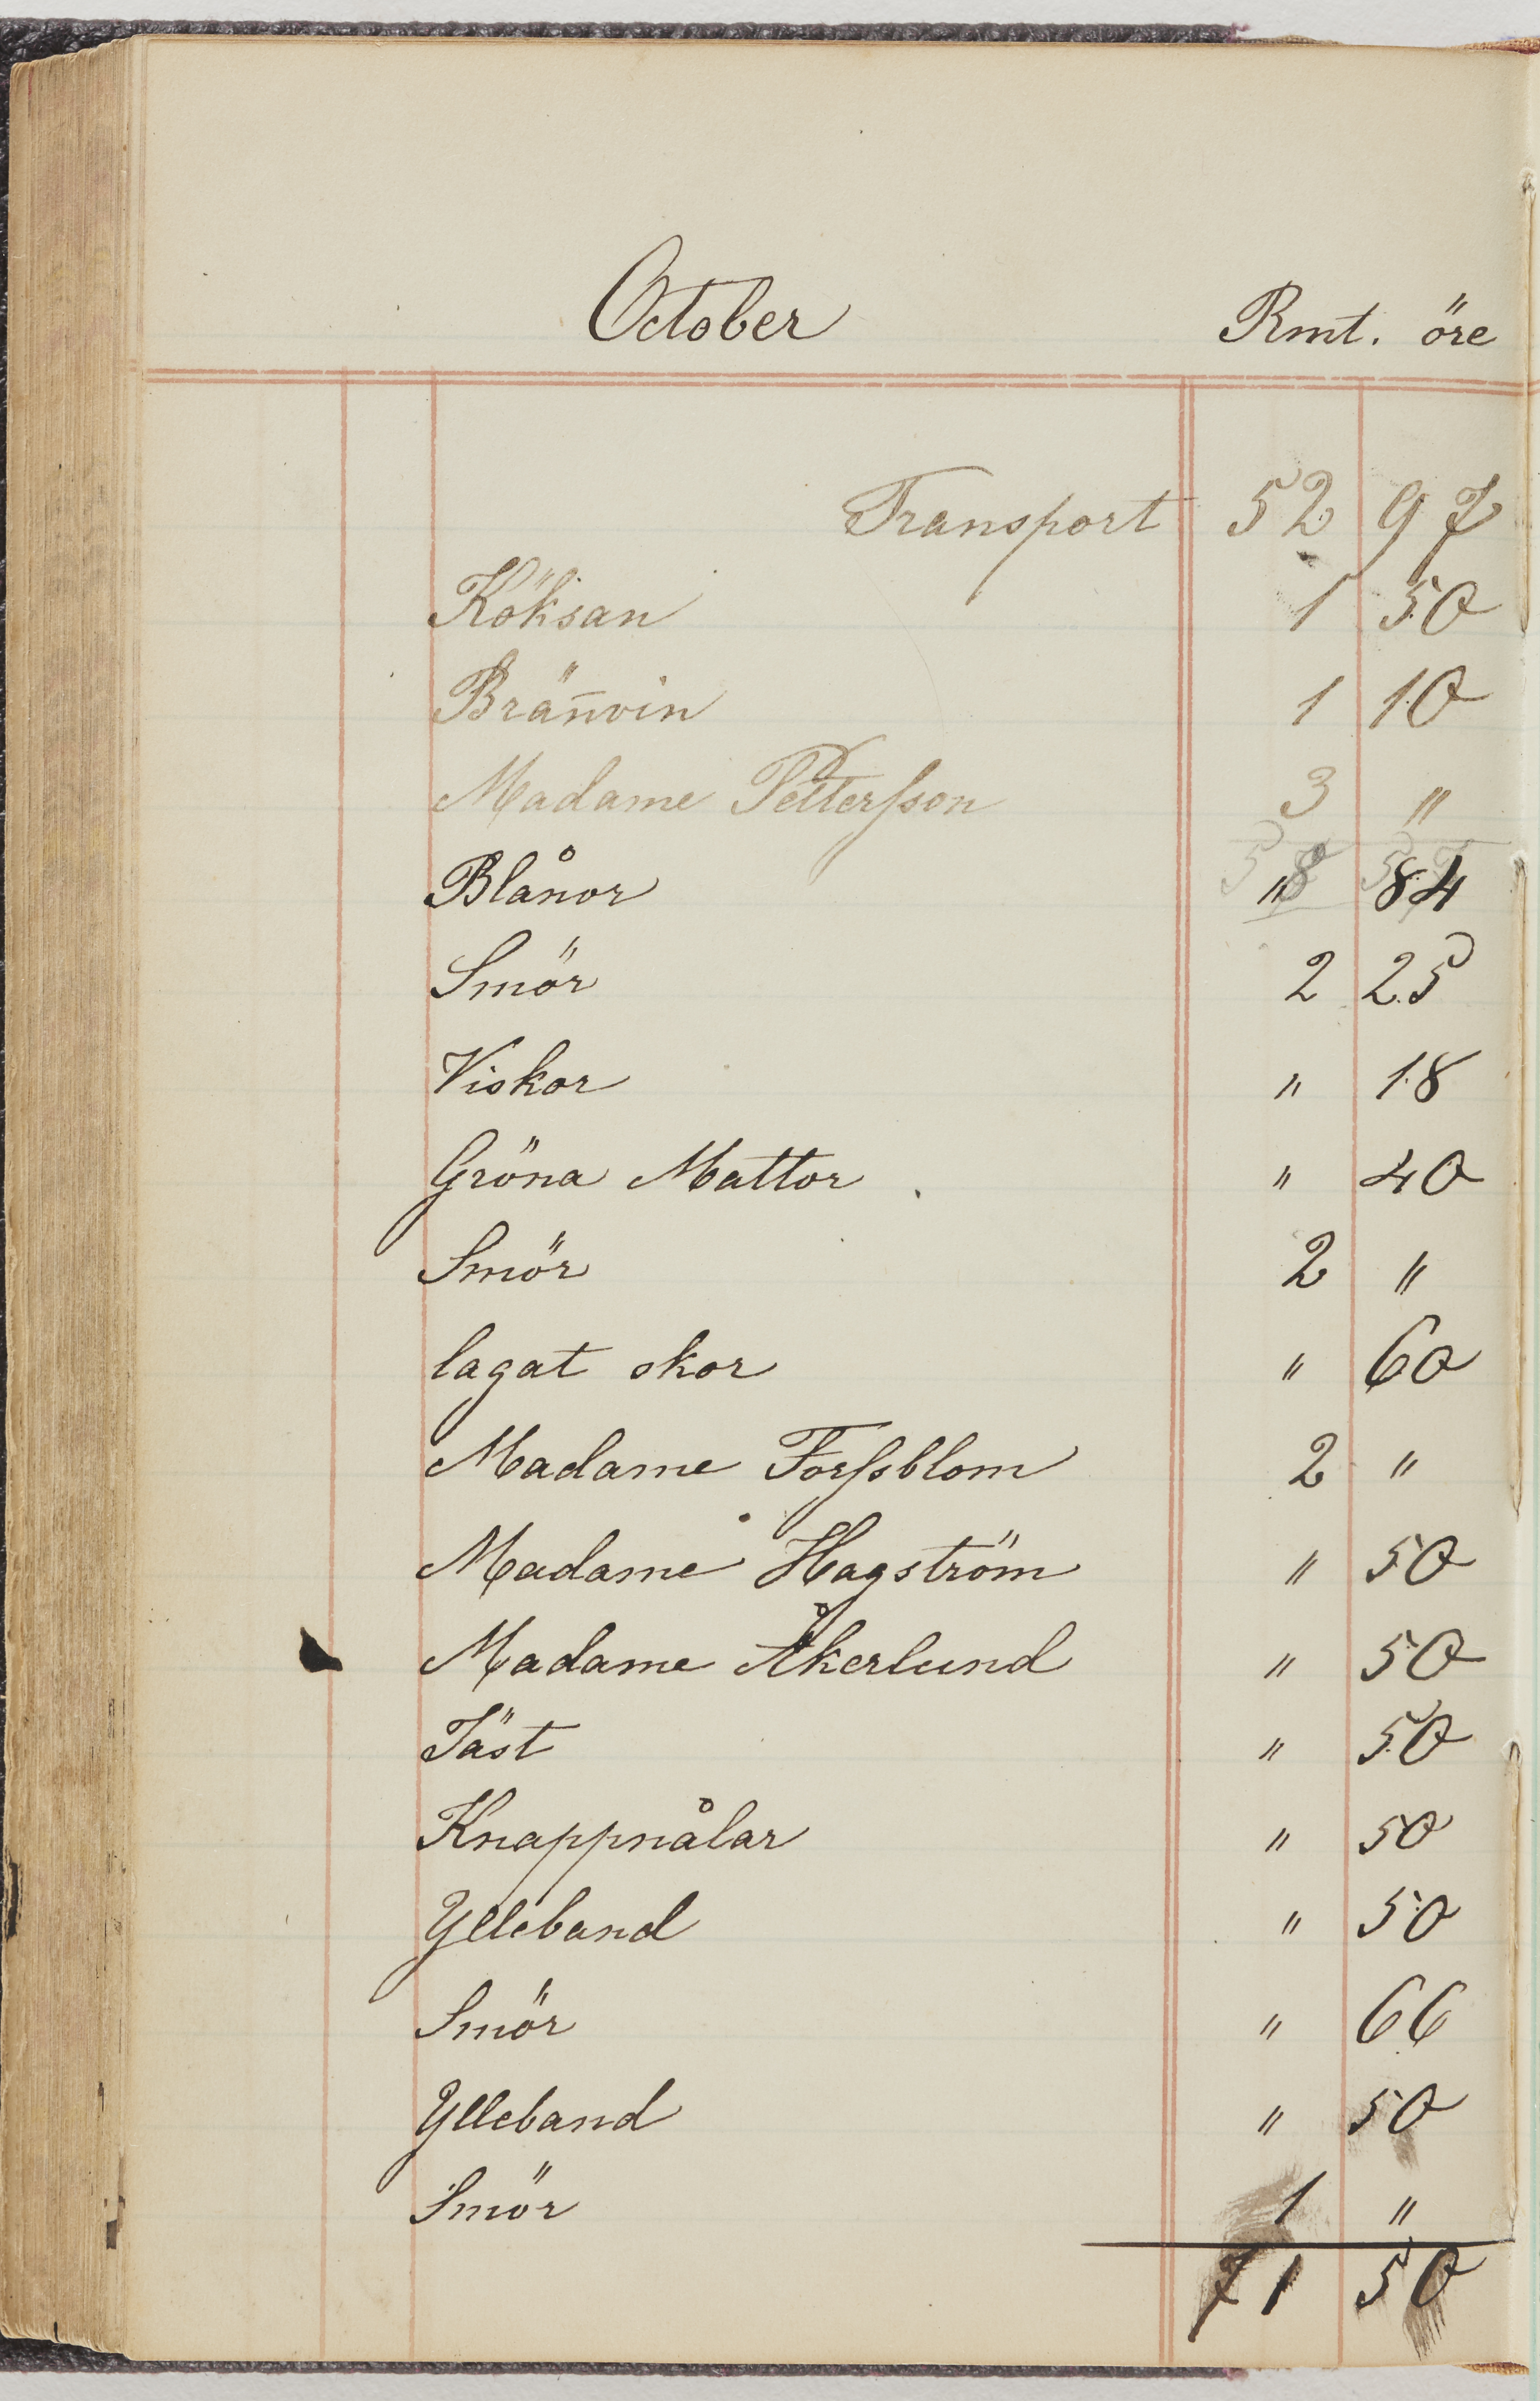 October Rmt. öre
Transport 52 97
Köksan 1 50
Brän̄vin 1 10
Madame Petterſson 3 "
Blånor " 84
Smör 2 25
Viskor " 18
Gröna Mattor " 40
Smör 2 "
lagat skor " 60
Madame Forſsblom 2 "
Madame Hagström " 50
Madame Åkerlund " 50
Jäst " 50
Knappnålar " 50
Ylleband " 50
Smör " 66
Ylleband " 50
Smör 1 "
71 50